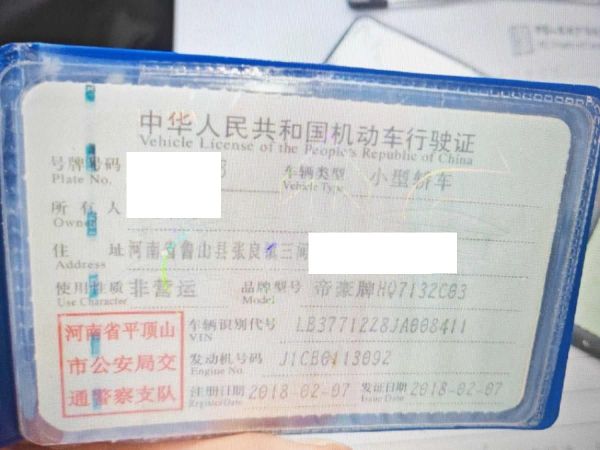 中华人民共和国机动车行驶证
Vehicle License of the People's Republic of China
号牌号码 3 车辆类型 小型轿车
Plate No. Vehicle Type
所有人
Owner
住址 河南省鲁山县张良镇三间
Address
使用性质 非营运 品牌型号 帝豪牌HQ7132C03
Use Character Model
河南省平顶山
市公安局交
通警察支队
车辆识别代号 LB37712Z8JA008411
VIN
发动机号码 J1CB0113092
Engine No.
注册日期 2018-02-07 发证日期 2018-02-07
Register Date Issue Date